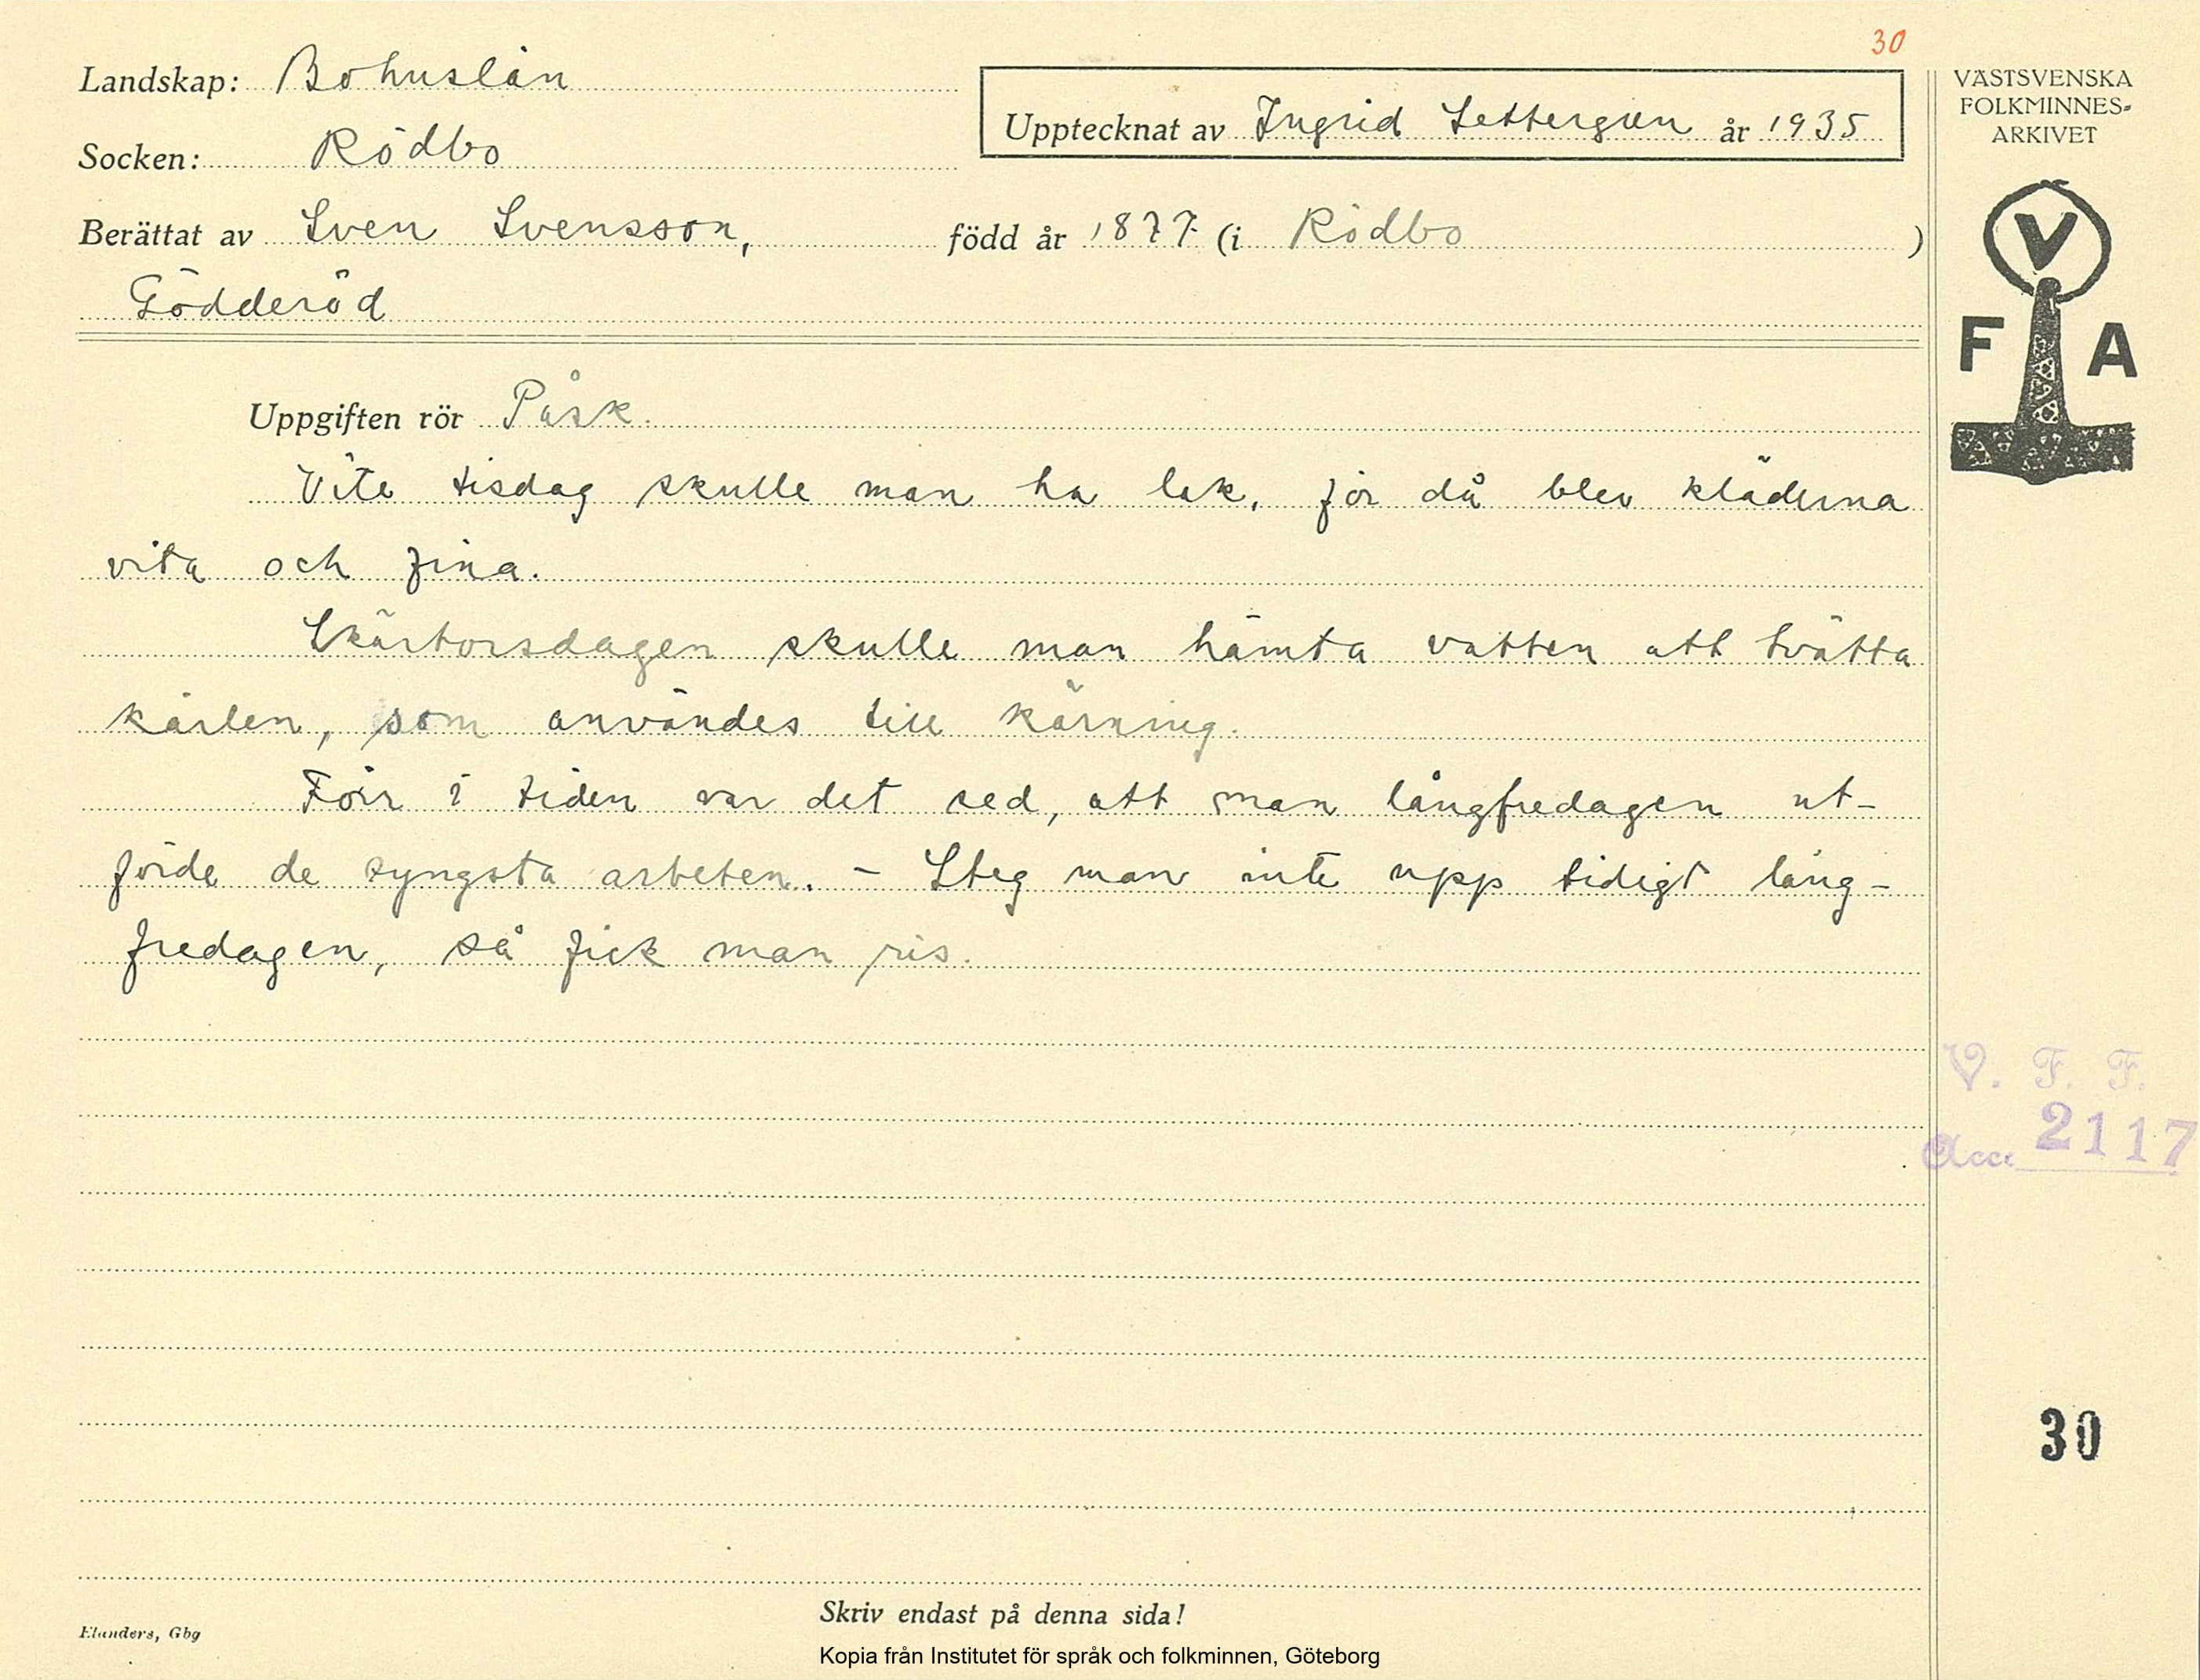 30
Landskap: Bohuslän
Upptecknat av Ingrid Settergren år 1935
VÄSTSVENSKA
FOLKMINNES-
ARKIVET
Socken: Rödbo
Berättat av Sven Svensson, född år 1877 (i Rödbo)
Gödderöd
V
F A
Uppgiften rör Påsk.
Vite tisdag skulle man ha lak, för då blev kläderna
vita och fina.
Skärtorsdagen skulle man hämta vatten att tvätta
kärlen, som användes till kärning.
Förr i tiden var det sed, att man långfredagen ut-
förde de tyngsta arbeten. – Steg man inte upp tidigt lång-
fredagen, så fick man ris.
V. F. F.
Acc. 2117
30
Skriv endast på denna sida!
Elanders, Gbg
Kopia från Institutet för språk och folkminnen, Göteborg